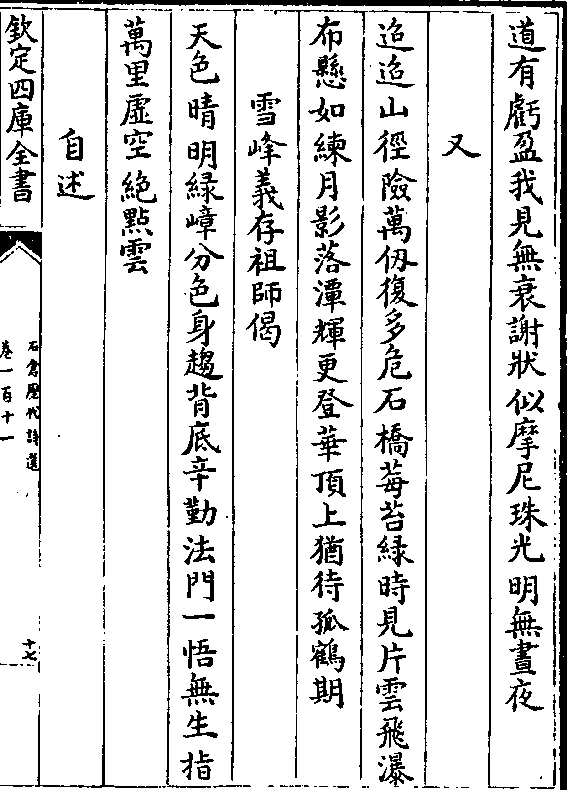 道有虧盈我見無衰謝狀似摩尼珠光明無晝夜
又
迢迢山徑險萬仭復多危石橋莓苔緑時見片雲飛瀑
布懸如練月影落潭輝更登華頂上猶待孤鶴期
雪峰義存祖師偈
天色晴明緑嶂分色身趨背底辛勤法門一悟無生指
萬里虛空絶點雲
自述
欽定四庫全書
石倉歷代詩選
卷一百十一
十七